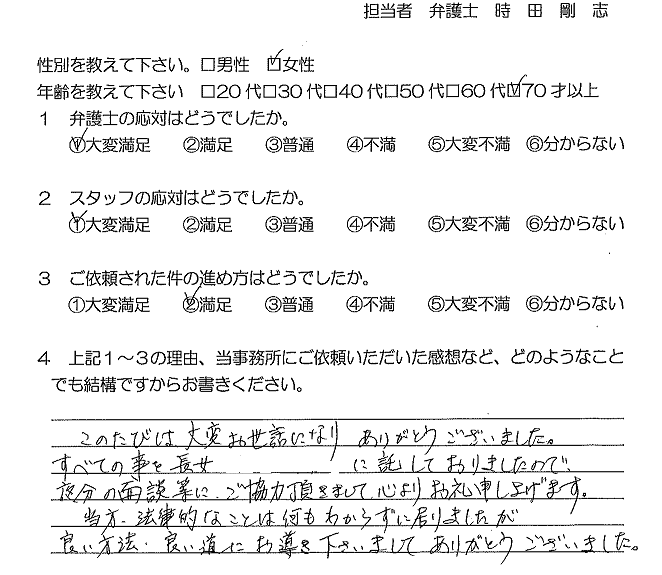 担当者 弁護士 時田剛志
性別を教えて下さい。□男性 ☑女性
年齢を教えて下さい □20代□30代□40代□50代□60代☑70才以上
1 弁護士の応対はどうでしたか。
①大変満足 ②満足 ③普通 ④不満 ⑤大変不満 ⑥分からない
2 スタッフの応対はどうでしたか。
①大変満足 ②満足 ③普通 ④不満 ⑤大変不満 ⑥分からない
3 ご依頼された件の進め方はどうでしたか。
①大変満足 ②満足 ③普通 ④不満 ⑤大変不満 ⑥分からない
4 上記1～3の理由、当事務所にご依頼いただいた感想など、どのようなこと
でも結構ですからお書きください。
このたびは大変お世話になり ありがとうございました。
すべての事を長女 に託しておりましたので、
夜分の面談等に、ご協力頂きまして心よりお礼申し上げます。
当方、法律的なことは何もわからずに居りましたが
良い方法、良い道にお導き下さいましてありがとうございました。